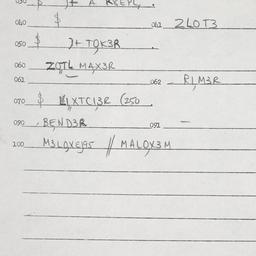 030 $ )+ A RKEPL,
040 $ 041 ZLOT3
050 $ )+ TQK3R .
060 ZQTL MAX3R
061 062 - RIM3R
070 $ XTC13R (250 .
090 . BEND3R 091 -
100 M3LQXE/95 // MALQX3M